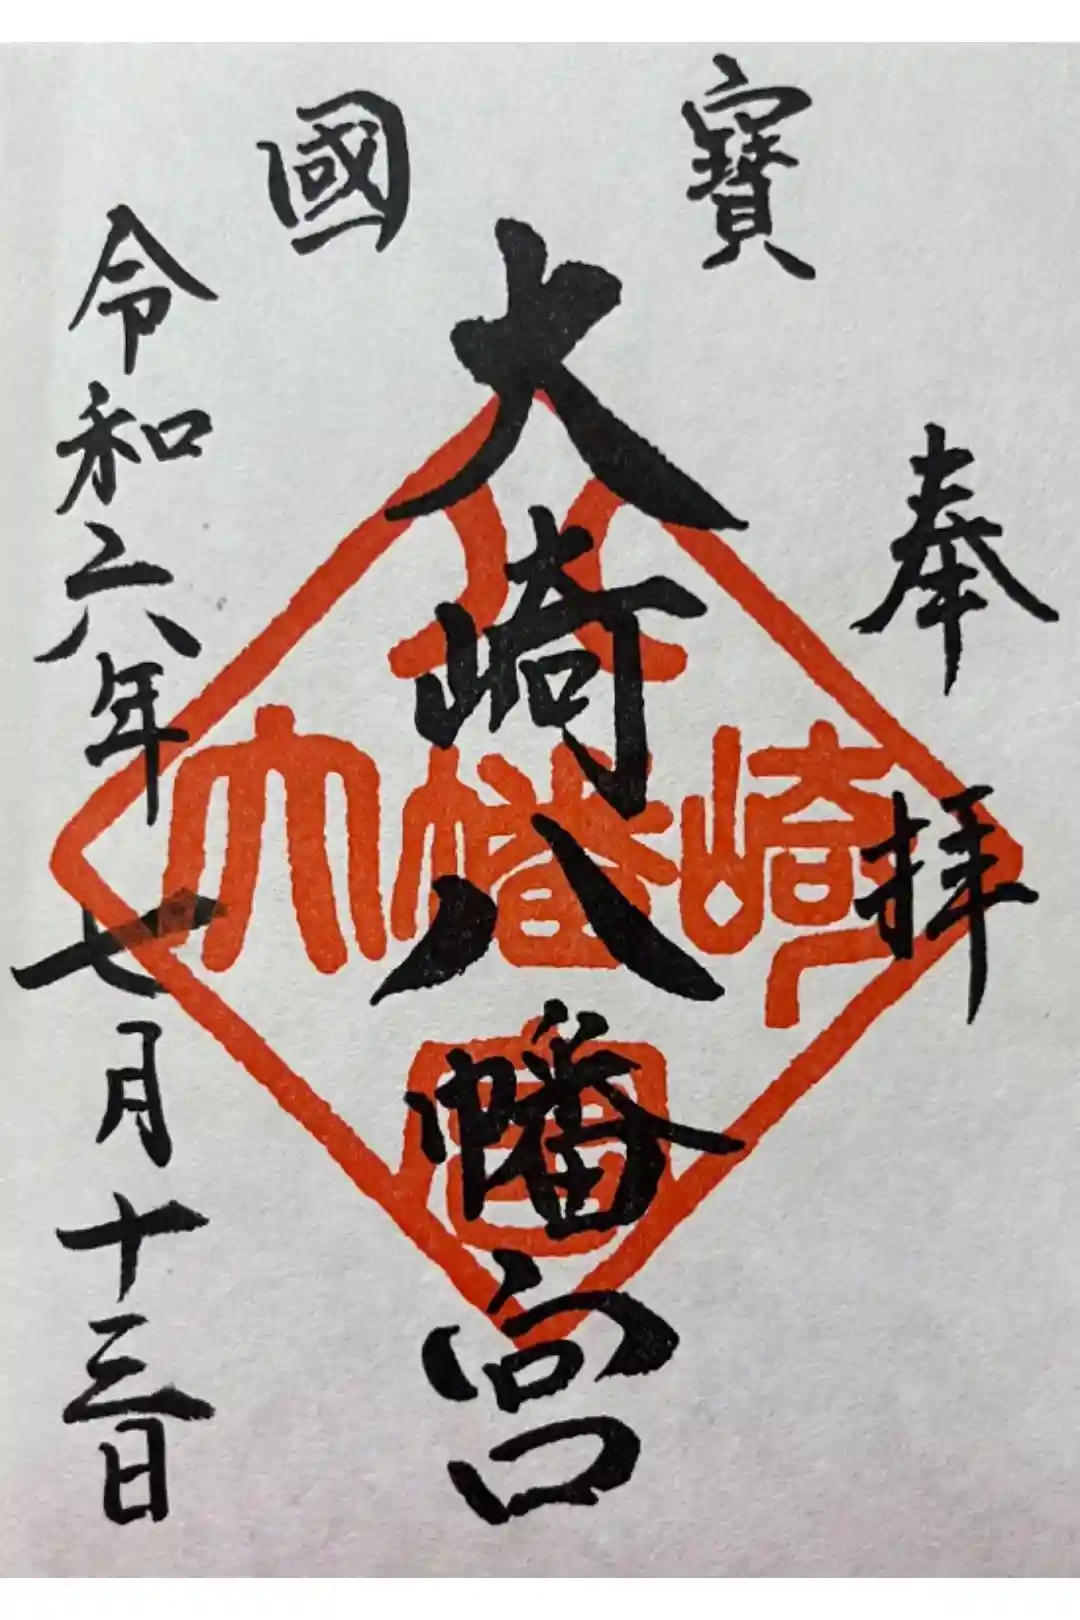 奉拝
國寶
大崎八幡宮
令和六年七月十三日
大崎八幡宮